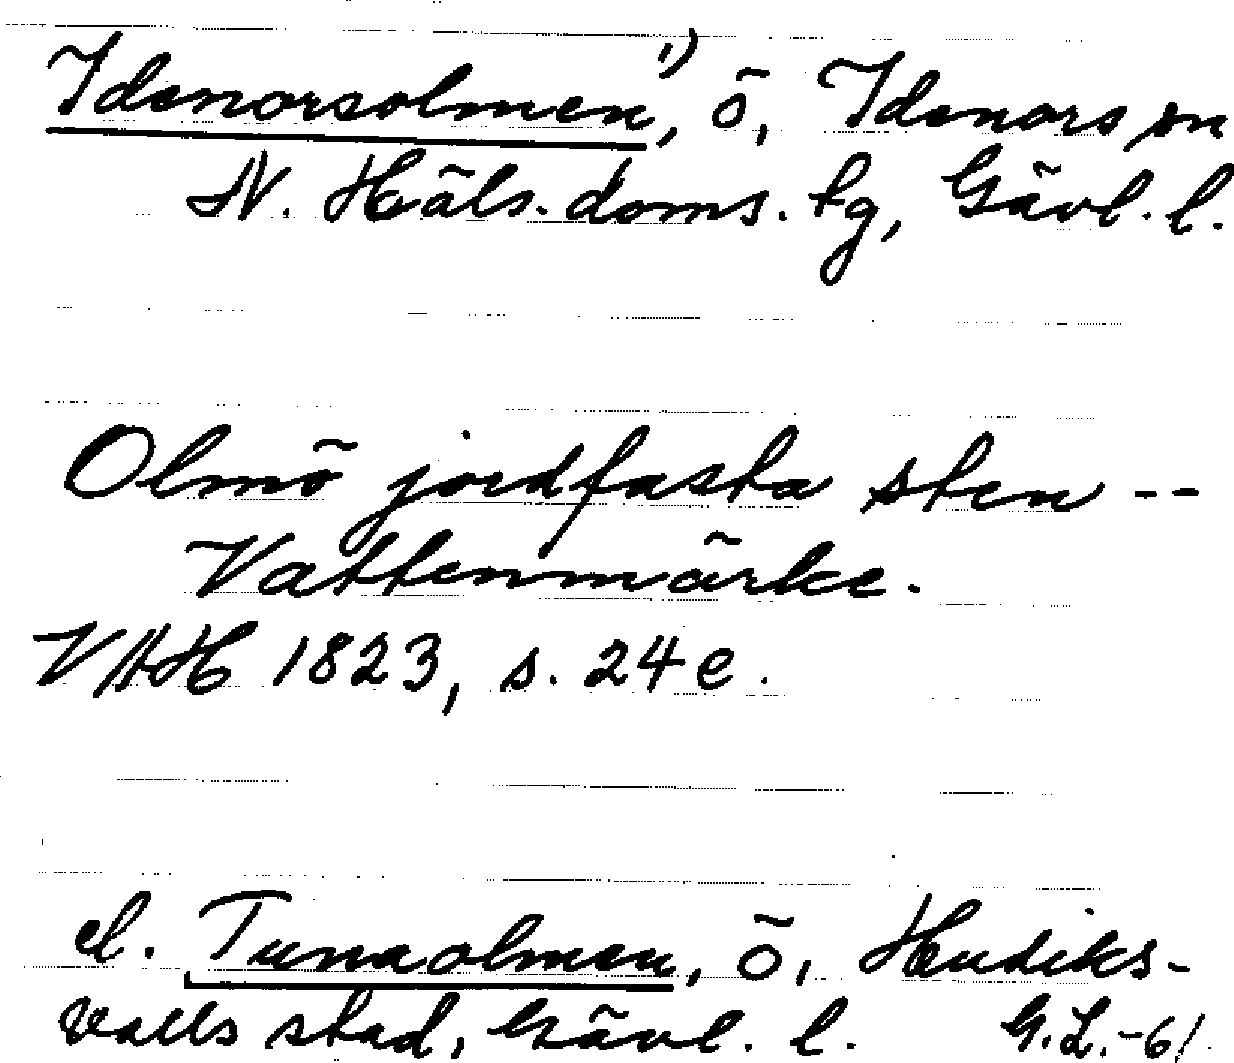 Idenorsolmen¹⁾, ö, Idenors sn
N. Häls. doms. tg, Gävl. l.
Olmö jordfasta sten --
Vattenmärke.
VAH 1823, s. 24 e.
el. Tunaolmen, ö, Hudiks-
valls stad, Gävl. l. G.L.-61